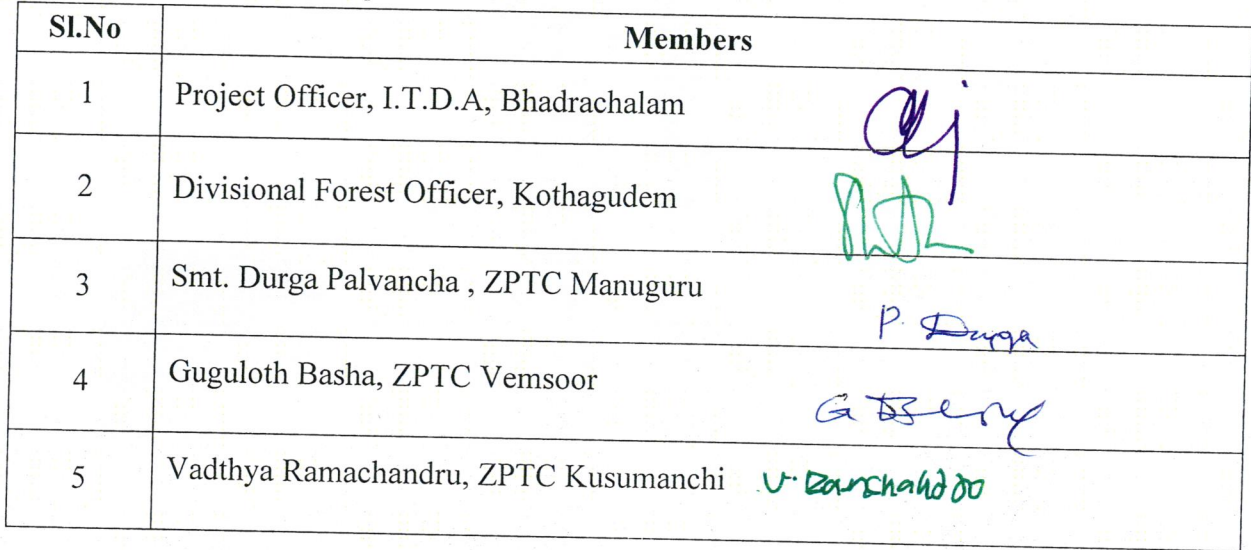 Sl.No Members
1 Project Officer, I.T.D.A, Bhadrachalam
2 Divisional Forest Officer, Kothagudem
3 Smt. Durga Palvancha , ZPTC Manuguru
P. Durga
4 Guguloth Basha, ZPTC Vemsoor
5 Vadthya Ramachandru, ZPTC Kusumanchi